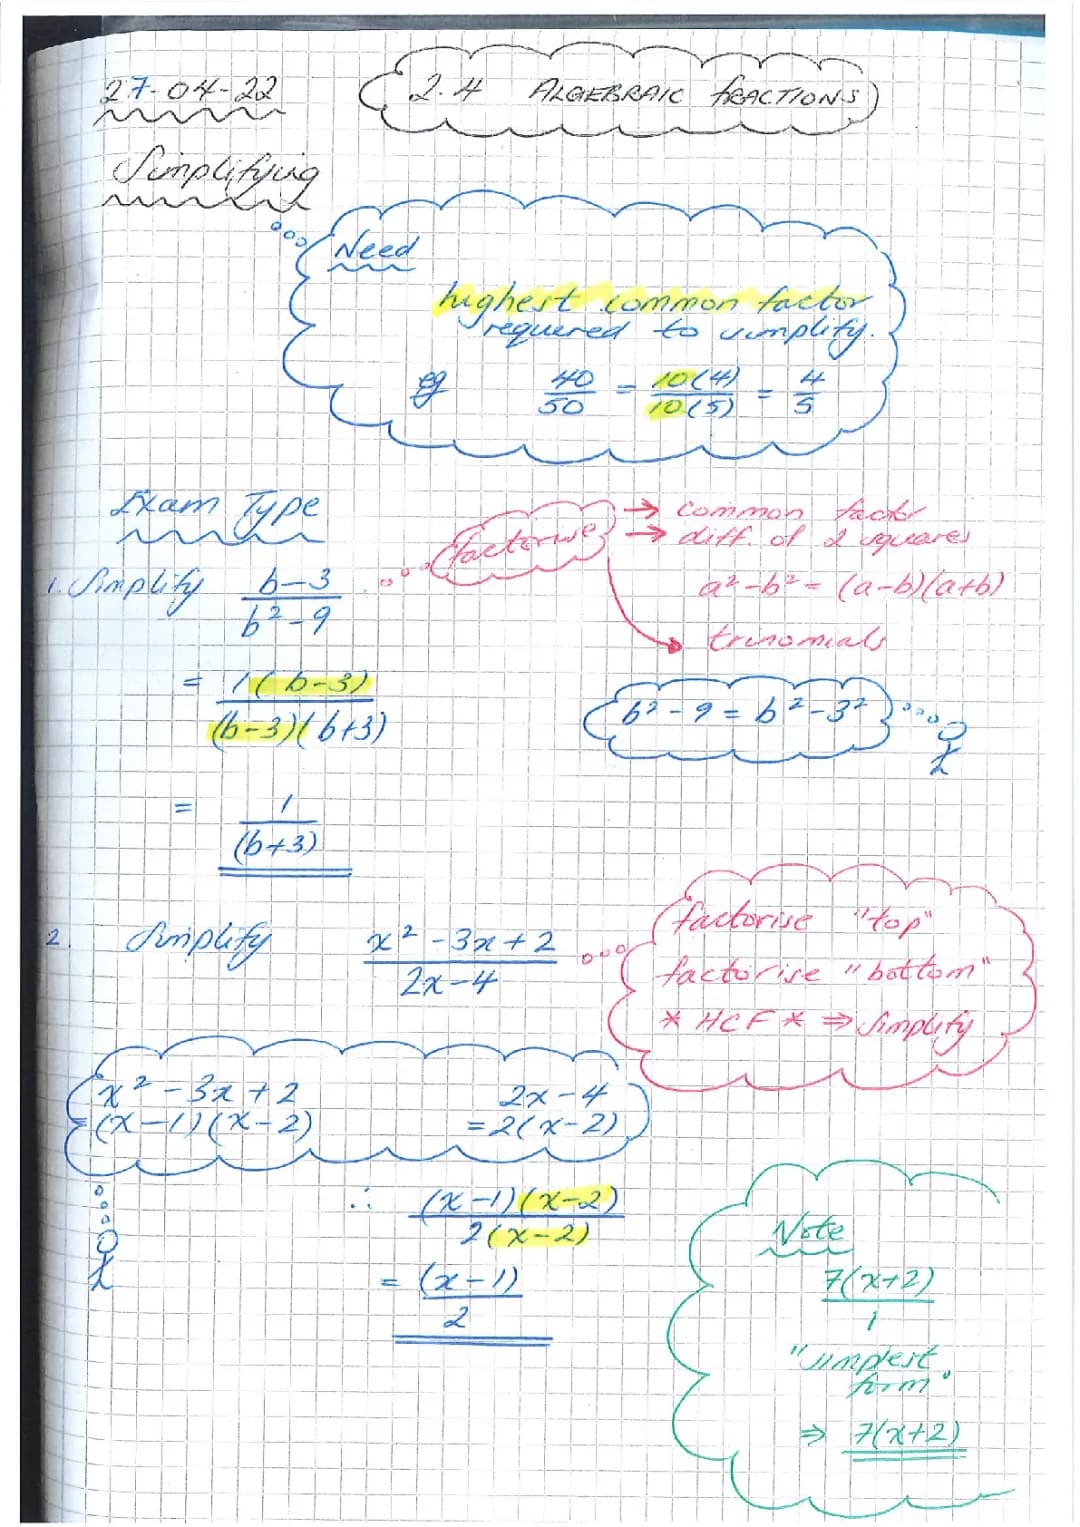 27-04-22
2.4 ALGEBRAIC FRACTIONS
Simplifying
Need
highest common factor
required to simplify.
eg 40/50 = 10(4)/10(5) = 4/5
Exam Type
factorise
→ common factor
→ diff. of 2 squares
a² - b² = (a-b)(a+b)
trinomials
1. Simplify (b-3)/(b²-9)
= 1(b-3)/(b-3)(b+3)
b² - 9 = b² - 3²
= 1/(b+3)
2. Simplify (x² - 3x + 2)/(2x - 4)
factorise "top"
factorise "bottom"
* HCF * ⇒ simplify
x² - 3x + 2
= (x-1)(x-2)
2x - 4
= 2(x-2)
∴ (x-1)(x-2)/2(x-2)
= (x-1)/2
Note
7(x+2)/1
"simplest
form"
⇒ 7(x+2)